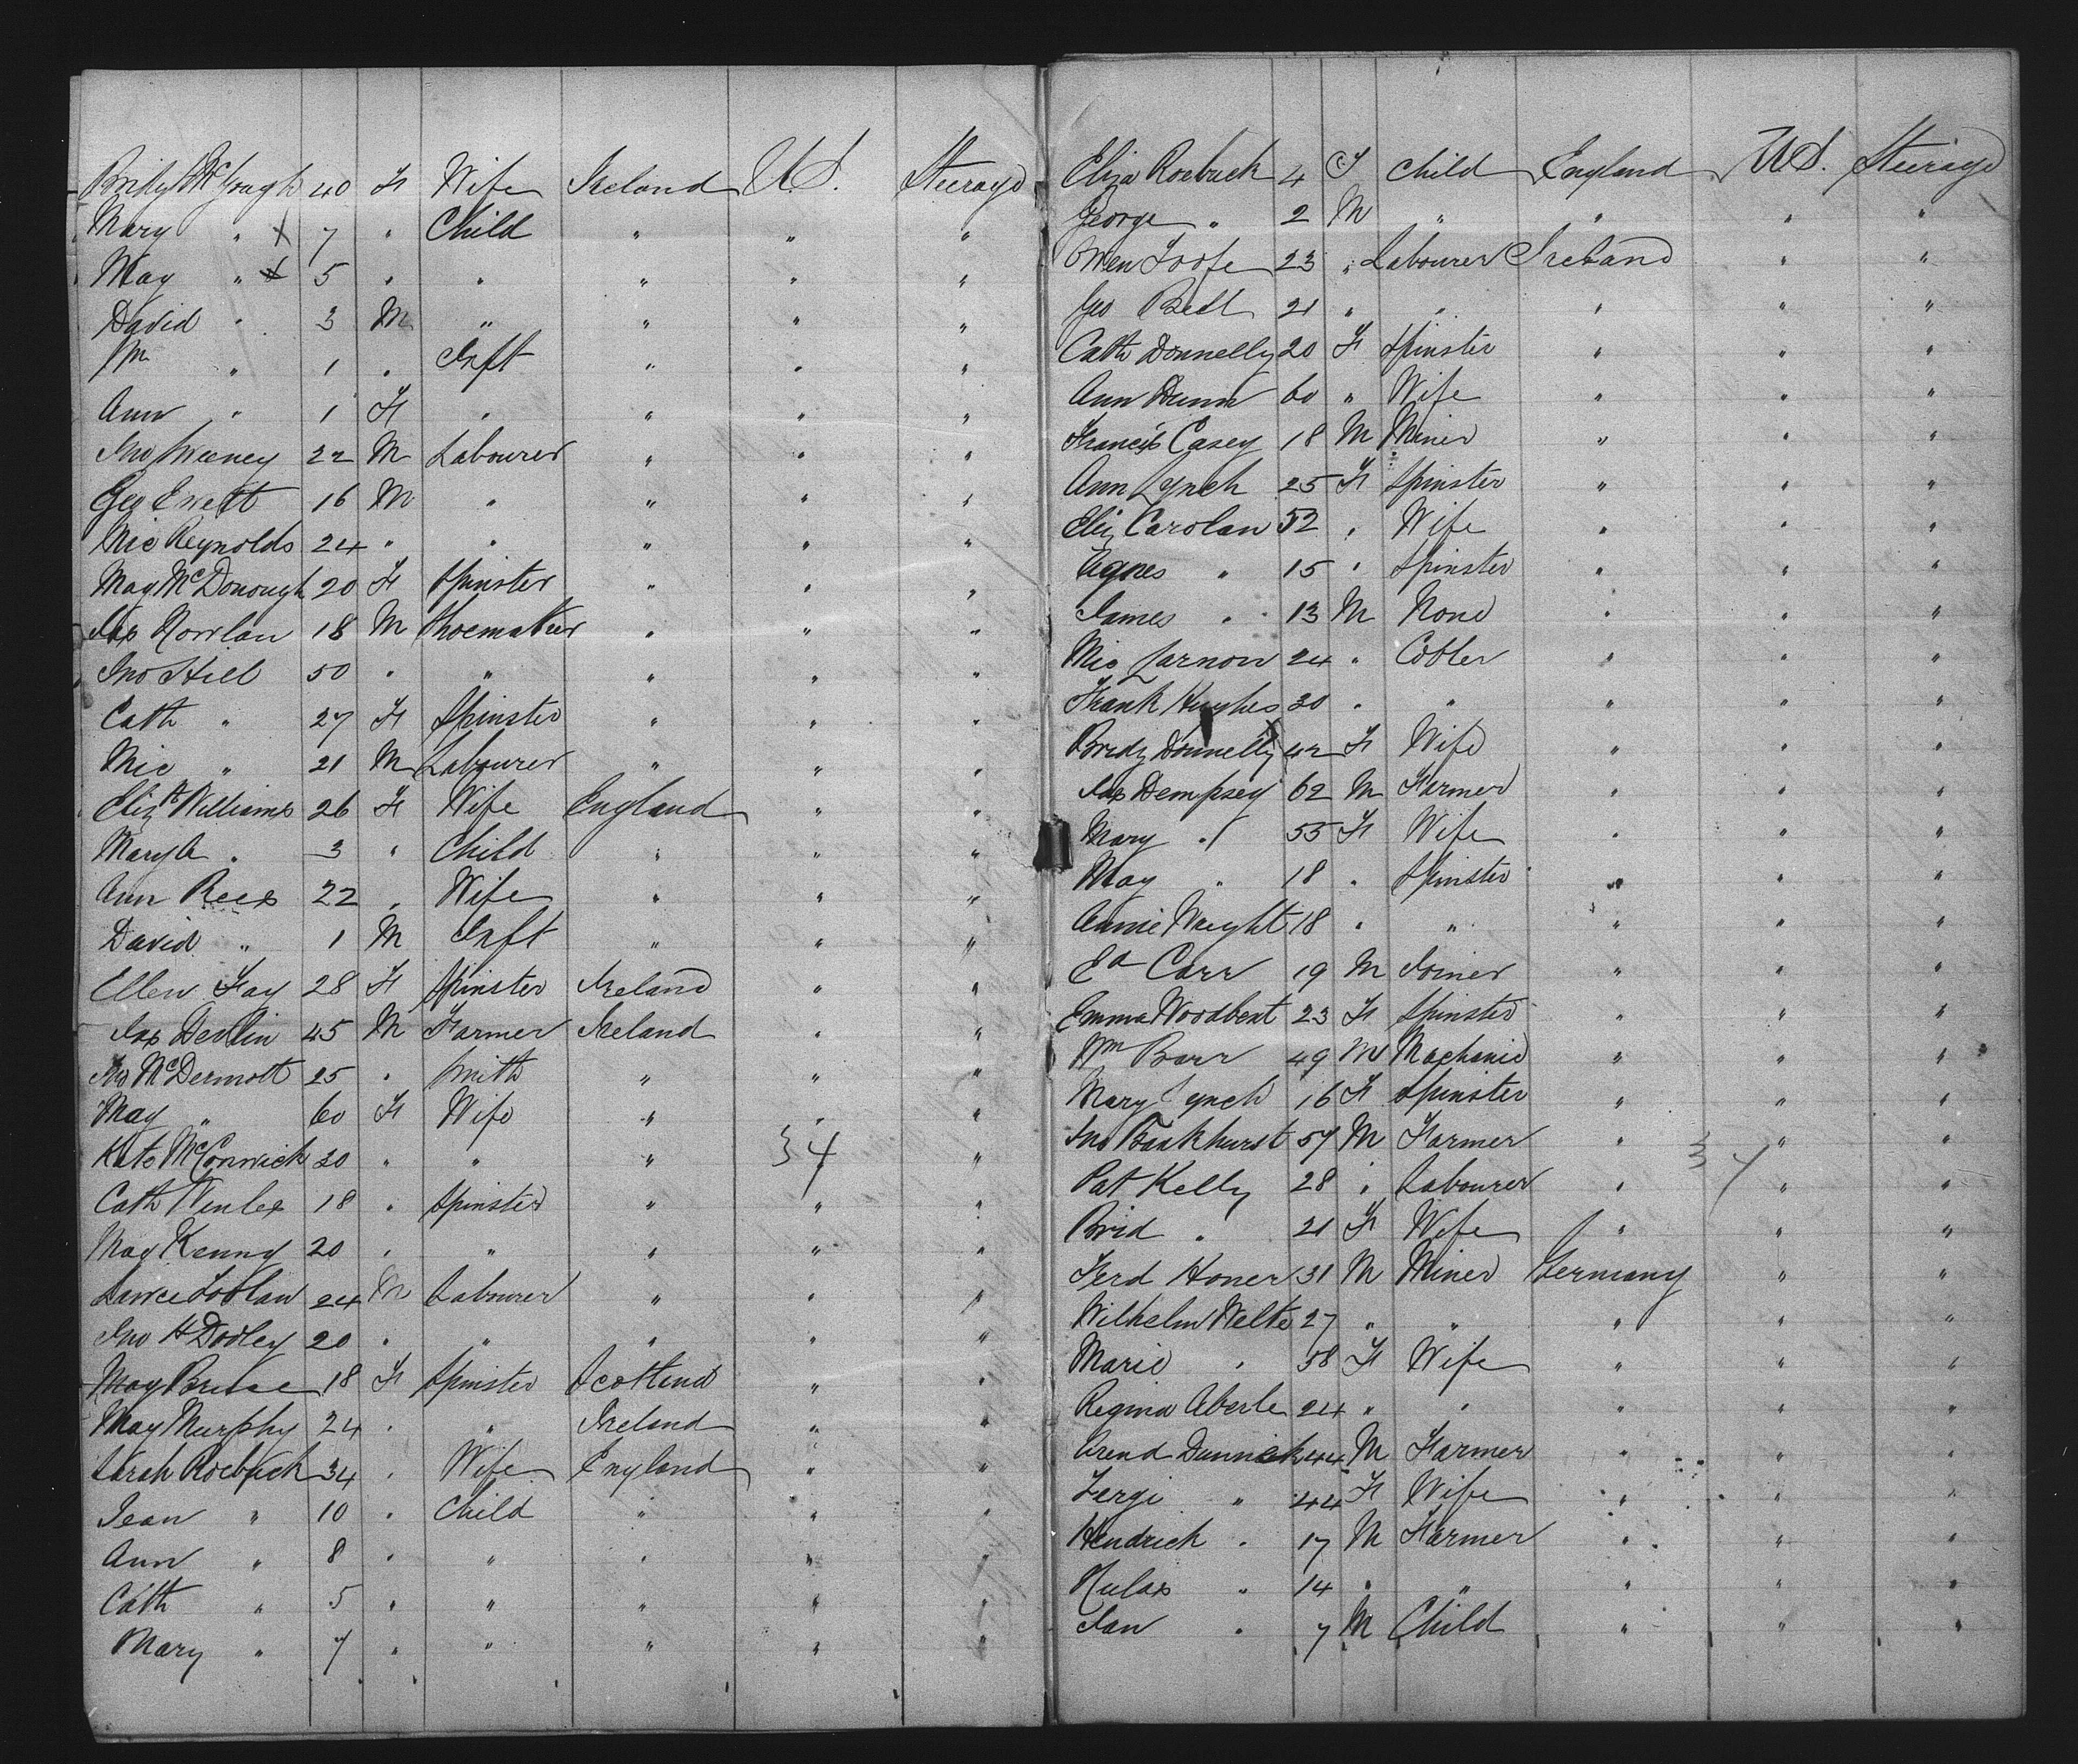 McGough 40 F Wife Ireland U.S. Steerage
Mary " X 7 " Child " " "
May " X 5 " " " " "
David " 3 M " " " "
Wm " 1 " Inft " " "
Ann " 1 F " " " "
Jno Sweeney 22 M Labourer " " "
Geo Evett 16 M " " " "
Mic Reynolds 24 " " " " "
May McDonough 20 F Spinster " " "
Jas Nowlan 18 M Shoemaker " " "
Jno Hill 50 " " " " "
Cath " 27 F Spinster " " "
Mic " 21 M Labourer " " "
Elizth Williams 26 F Wife England " "
Mary A " 3 " Child " " "
Ann Rees 22 " Wife " " "
David " 1 M Inft " " "
Ellen Fay 28 F Spinster Ireland " "
Jas Devlin 45 M Farmer Ireland " "
Jno McDermott 25 " Smith " " "
May " 60 F Wife " " "
Kate McConwick 20 " " " 34 " "
Cath 18 " Spinster " " "
May Kenny 20 " " " " "
Lawce 24 M Labourer " " "
Jno H Dooley 20 " " " " "
May 18 F Spinster Scotland " "
May Murphy 24 " " Ireland " "
Sarah Roebuck 34 " Wife England " "
Jean " 10 " Child " " "
Ann " 8 " " " " "
Cath " 5 " " " " "
Mary " 7 " " " " "
Eliza Roebuck 4 F Child England U.S. Steerage
George " 2 M " " " "
Owen 23 " Labourer Ireland " "
Geo Bell 21 " " " " "
Cath Donnelly 20 F Spinster " " "
Ann Dunn 60 " Wife " " "
Francis Casey 18 M Miner " " "
Ann Lynch 25 F Spinster " " "
Eliz Carolan 52 " Wife " " "
Agnes " 15 " Spinster " " "
James " 13 M None " " "
Mic Larnon 24 " Cobler " " "
Frank Hughes 30 " " " " "
Bridg Donnelly 42 F Wife " " "
Jas Dempsey 62 M Farmer " " "
Mary " 55 F Wife " " "
May " 18 " Spinster " " "
Annie Wright 18 " " " " "
Ed Carr 19 M Joiner " " "
Emma Woodbent 23 F Spinster " " "
Wm Barr 49 M Machanic " " "
Mary Lynch 16 F Spinster " " "
Jno Bankhurst 57 M Farmer " 34 " "
Pat Kelly 28 " Labourer " " "
Brid " 21 F Wife " " "
Ferd Honer 31 M Miner Germany " "
Wilhelm Welte 27 " " " " "
Marie " 58 F Wife " " "
Regina Aberle 24 " " " " "
Arend Dannick 44 M Farmer " " "
" 44 F Wife " " "
Hendrick " 17 M Farmer " " "
" 14 " " " " "
Jan " 7 M Child " " "